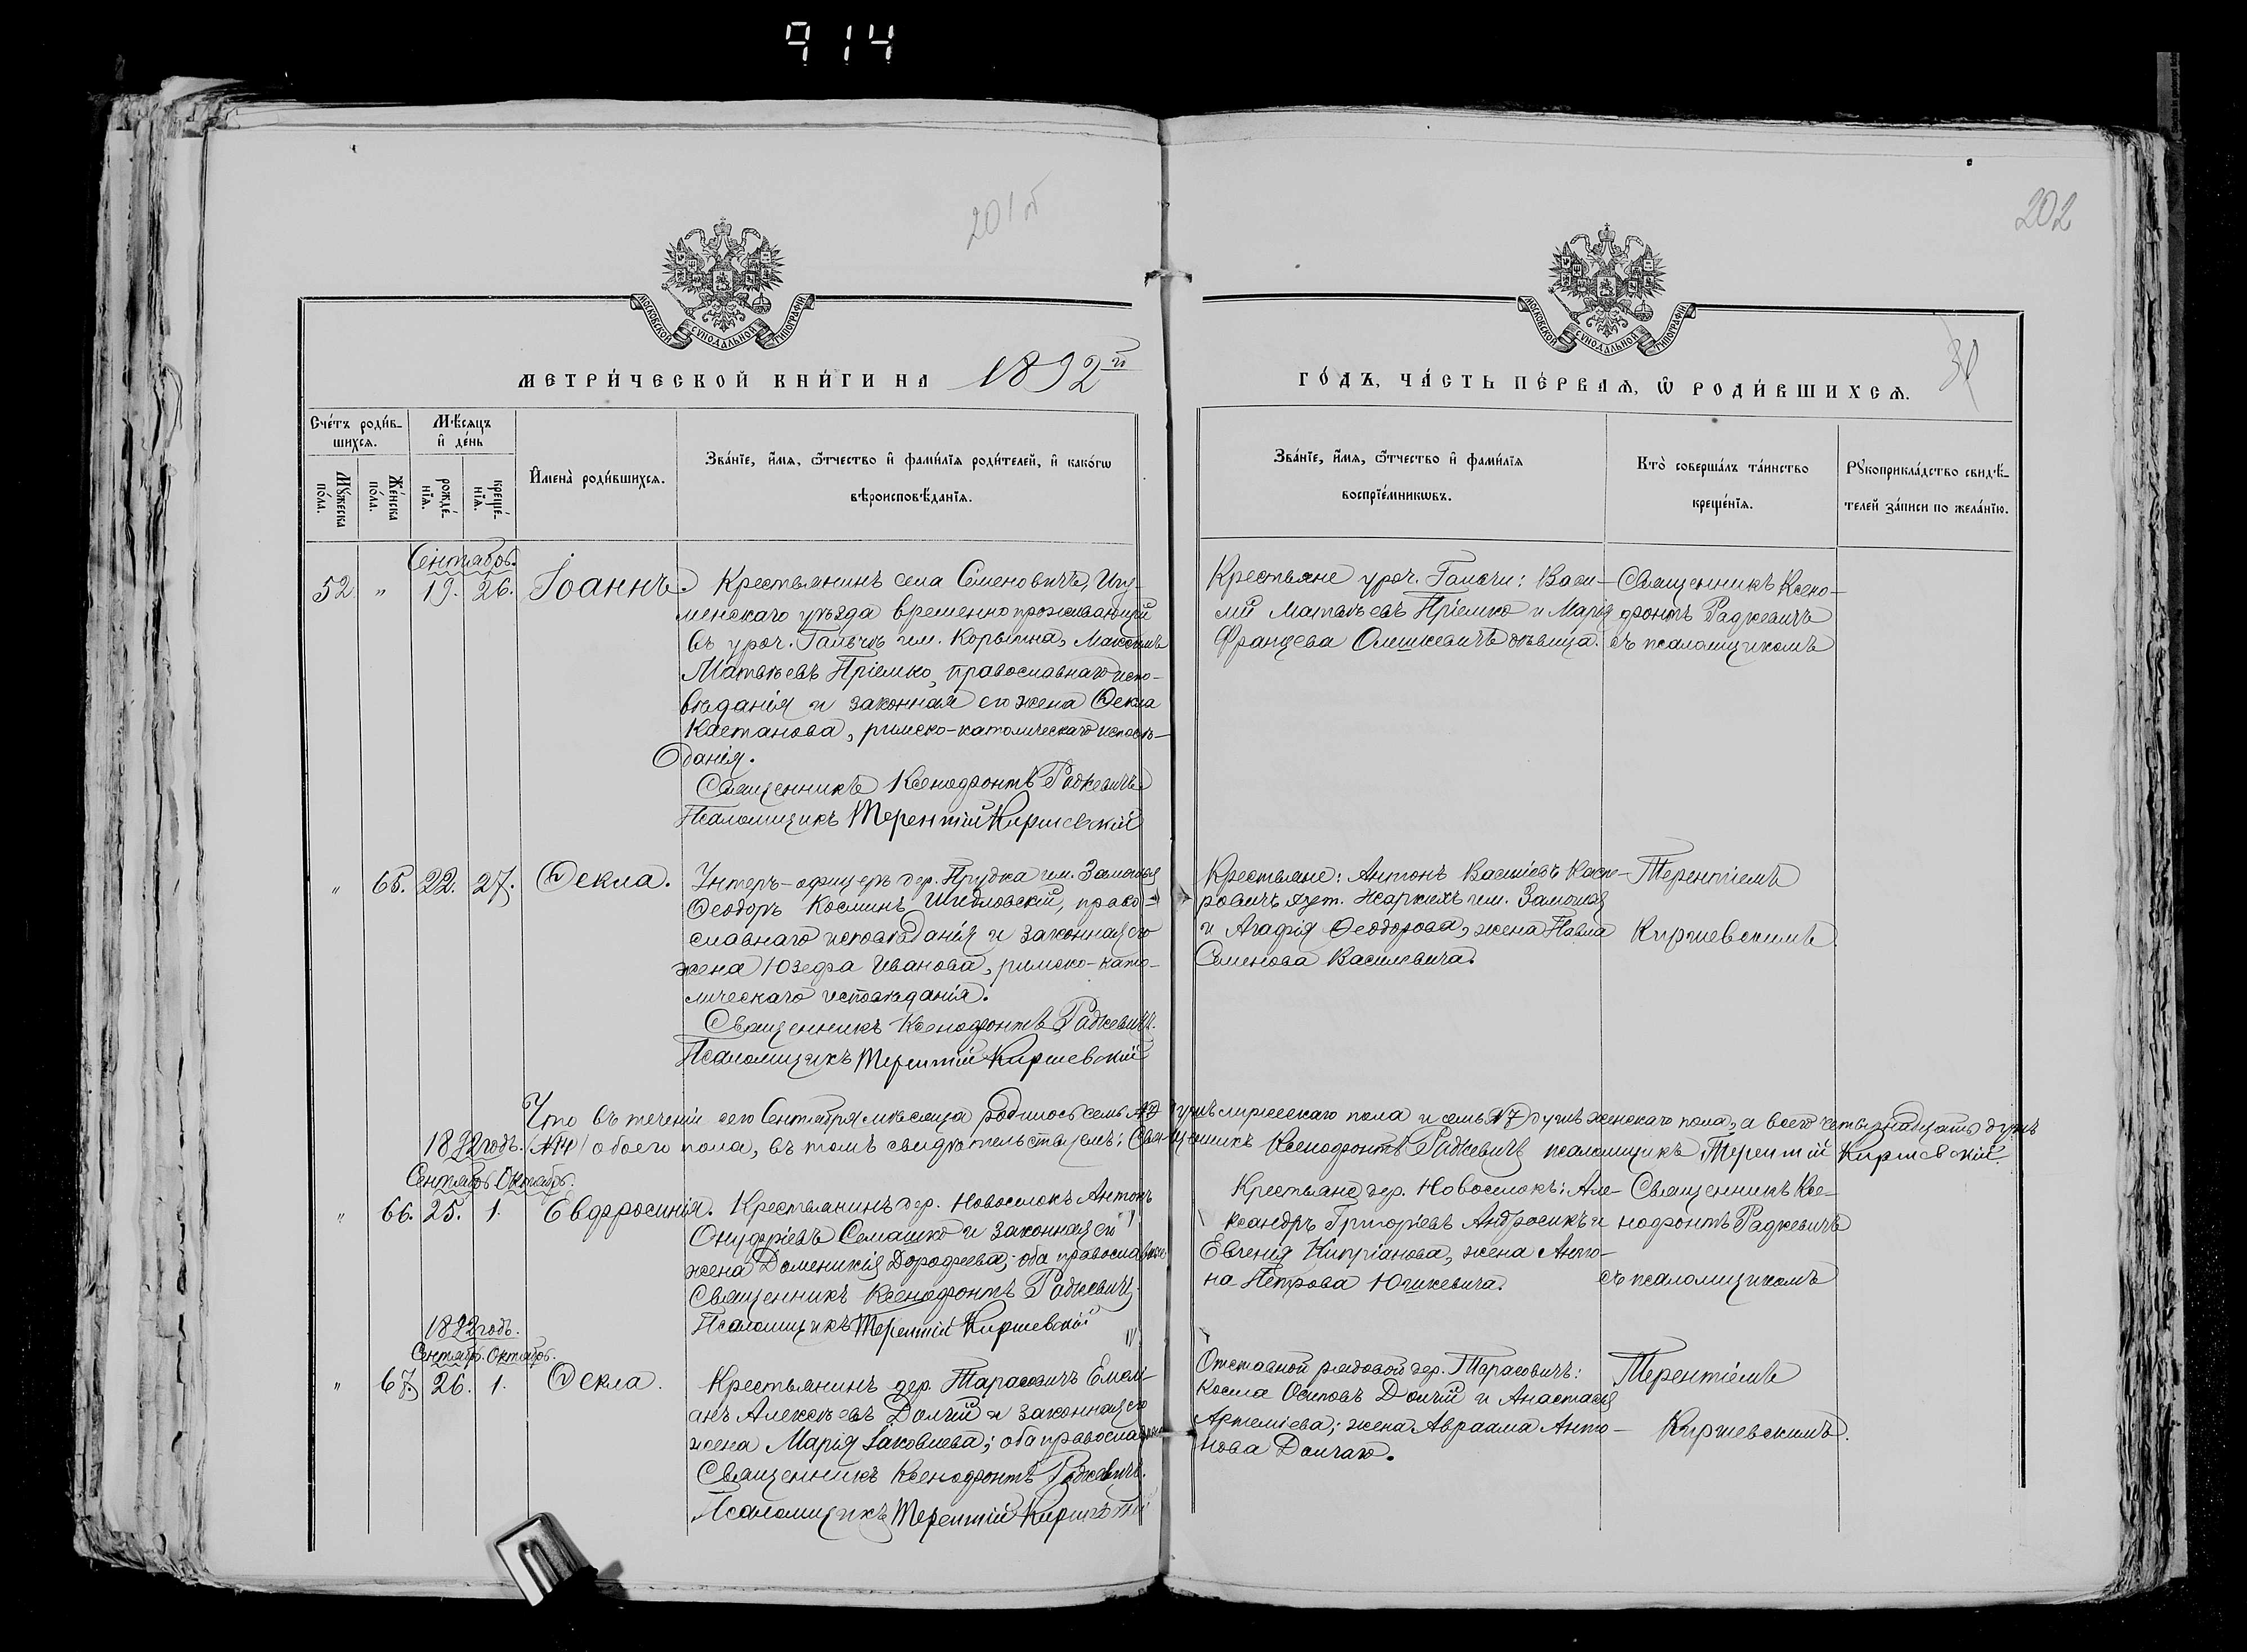 914
201
202
МОСКОВСКОЙ СУНОДАЛЬНОЙ ТИПОГРАФІИ
МОСКОВСКОЙ СУНОДАЛЬНОЙ ТИПОГРАФІИ
МЕТРИ́ЧЕСКОЙ КНИ́ГИ НА 1892й
ГО́ДЪ, ЧА́СТЬ ПЕ́РВАѦ, Ѿ РОДИ́ВШИХСѦ.
30
Сче́тъ роди́в-
шихсѧ.
Мꙋ́жеска по́ла.
Же́нска по́ла.
Мѣ́сѧцъ
и҆ де́нь
рожде́-
нїѧ.
креще́-
нїѧ.
И҆мена̀ роди́вшихсѧ.
Зва́нїе, и҆́мѧ, ѻ҆́тчество и҆ фами́лїѧ роди́телей, и҆ како́гѡ
вѣроисповѣ́данїѧ.
Зва́нїе, и҆́мѧ, ѻ҆́тчество и҆ фами́лїѧ
воспрїе́мникѡвъ.
Кто̀ соверша́лъ та́инство
креще́нїѧ.
Рꙋкоприкла́дство свидѣ́-
телей за́писи по жела́нїю.
Сентябрь.
52. " 19. 26. Іоаннъ.
Крестьянинъ села Семеновичъ, Игу-
менскаго уѣзда временно проживающій
въ уроч. Гальчѣ им. Корытна, Максимъ
Матвѣевъ Пріемко, православнаго испо-
вѣданія и законная его жена Ѳекла
Каетанова, римско-католическаго исповѣ-
данія.
Священникъ Ксенофонтъ Радкевичъ
Псаломщикъ Терентій Киршевскій
Крестьяне уроч. Гальчи: Васи-
лій Матвѣевъ Пріемко и Марія
Францева Олешкевичъ дѣвица.
Священникъ Ксено-
фонтъ Радкевичъ
съ псаломщикомъ
" 65. 22. 27. Ѳекла.
Унтеръ-офицеръ дер. Прудка им. Замошья
Ѳеодоръ Косминъ Шидловскій, право-
славнаго исповѣданія и законная его
жена Юзефа Иванова, римско-като-
лическаго исповѣданія.
Священникъ Ксенофонтъ Радкевичъ.
Псаломщикъ Терентій Киршевскій
Крестьяне: Антонъ Василіевъ Каспе-
ровичъ аует. Жаркихъ им. Замошья
и Агафія Ѳеодорова, жена Павла
Семенова Василевича.
Терентіемъ
Киршевскимъ.
Что въ теченіи сего Сентября мѣсяца родилось семь №7 душъ мужескаго пола и семь №7 душъ женскаго пола, а всего четырнадцать душъ
№14 обоего пола, въ томъ свидѣтельствуемъ: Священникъ Ксенофонтъ Радкевичъ псаломщикъ Терентій Киршевскій.
1892 годъ.
Сентябрь. Октябрь.
" 66. 25. 1. Евфросинія.
Крестьянинъ дер. Новоселокъ Антонъ
Онуфріевъ Семашко и законная его
жена Доменикія Дорофеева; оба православные.
Священникъ Ксенофонтъ Радкевичъ.
Псаломщикъ Терентій Киршевскій
Крестьяне дер. Новоселокъ: Але-
ксандръ Григоріевъ Андросикъ и
Евгенія Кипріанова, жена Анто-
на Петрова Юшкевича.
Священникъ Ксе-
нофонтъ Радкевичъ
съ псаломщикомъ
1892 годъ.
Сентябрь. Октябрь.
" 67. 26. 1. Ѳекла.
Крестьянинъ дер. Тарасовичъ Емелі-
анъ Алексѣевъ Долгій и законная его
жена Марія Іаковлева; оба православные
Священникъ Ксенофонтъ Радкевичъ.
Псаломщикъ Терентій Киршевскій
Отставной рядовой дер. Тарасовичъ:
Косма Осиповъ Долгій и Анастасія
Артеміева; жена Авраама Анто-
нова Долгаго.
Терентіемъ
Киршевскимъ.